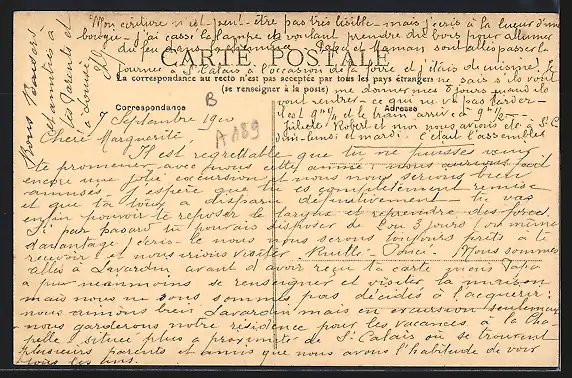 Mon écriture n'est peut-être pas très lisible mais j'écris à la lueur d'une
bougie - j'ai cassé la lampe en voulant prendre du bois pour allumer
du feu dans la cheminée. Papa et Maman sont allés passer la
CARTE POSTALE
journée à St Calais à l'occasion de la foire et j'étais de cuisine. Je
La correspondance au recto n'est pas acceptée par tous les pays étrangers
(se renseigner à la poste)
ne sais s'ils vont
me donner mes 8 jours quand ils
vont rentrer - ce qui ne va pas tarder
Correspondance
Adresse
il est 9h 1/4 et le train arrive à 9h 1/2 -
B
A 189
7 Septembre 19
Juliette Robert et moi nous avions été à St C
dim. lundi et mardi. C'était l'assemblée
Chère Marguerite
Il est regrettable que tu ne puisses venir
te promener avec nous cette année, nous aurions fait
encore une jolie excursion et nous nous serions bien
amusés. J'espère que tu es complètement remise
et que ta toux a disparu définitivement - tu vas
enfin pouvoir te reposer le larynx et reprendre des forces.
Si par hasard tu pouvais disposer de 2 ou 3 jours (ou même
davantage) écris-le nous nous serons toujours prêts à te
recevoir et nous irions visiter Ruillé-Poncé. Nous sommes
allés à Lavardin avant d'avoir reçu ta carte mais Papa
a pu néanmoins se renseigner et visiter la maison
mais nous ne nous sommes pas décidés à l'acquérir;
nous aimons bien Lavardin mais en excursion seulement
nous garderons notre résidence pour les vacances à la Cha-
pelle située plus à proximité de St Calais où se trouvent
plusieurs parents et amis que nous avons l'habitude de voir
tous les ans.
Bons Baisers
et amitiés à
tes Parents et
à Louise